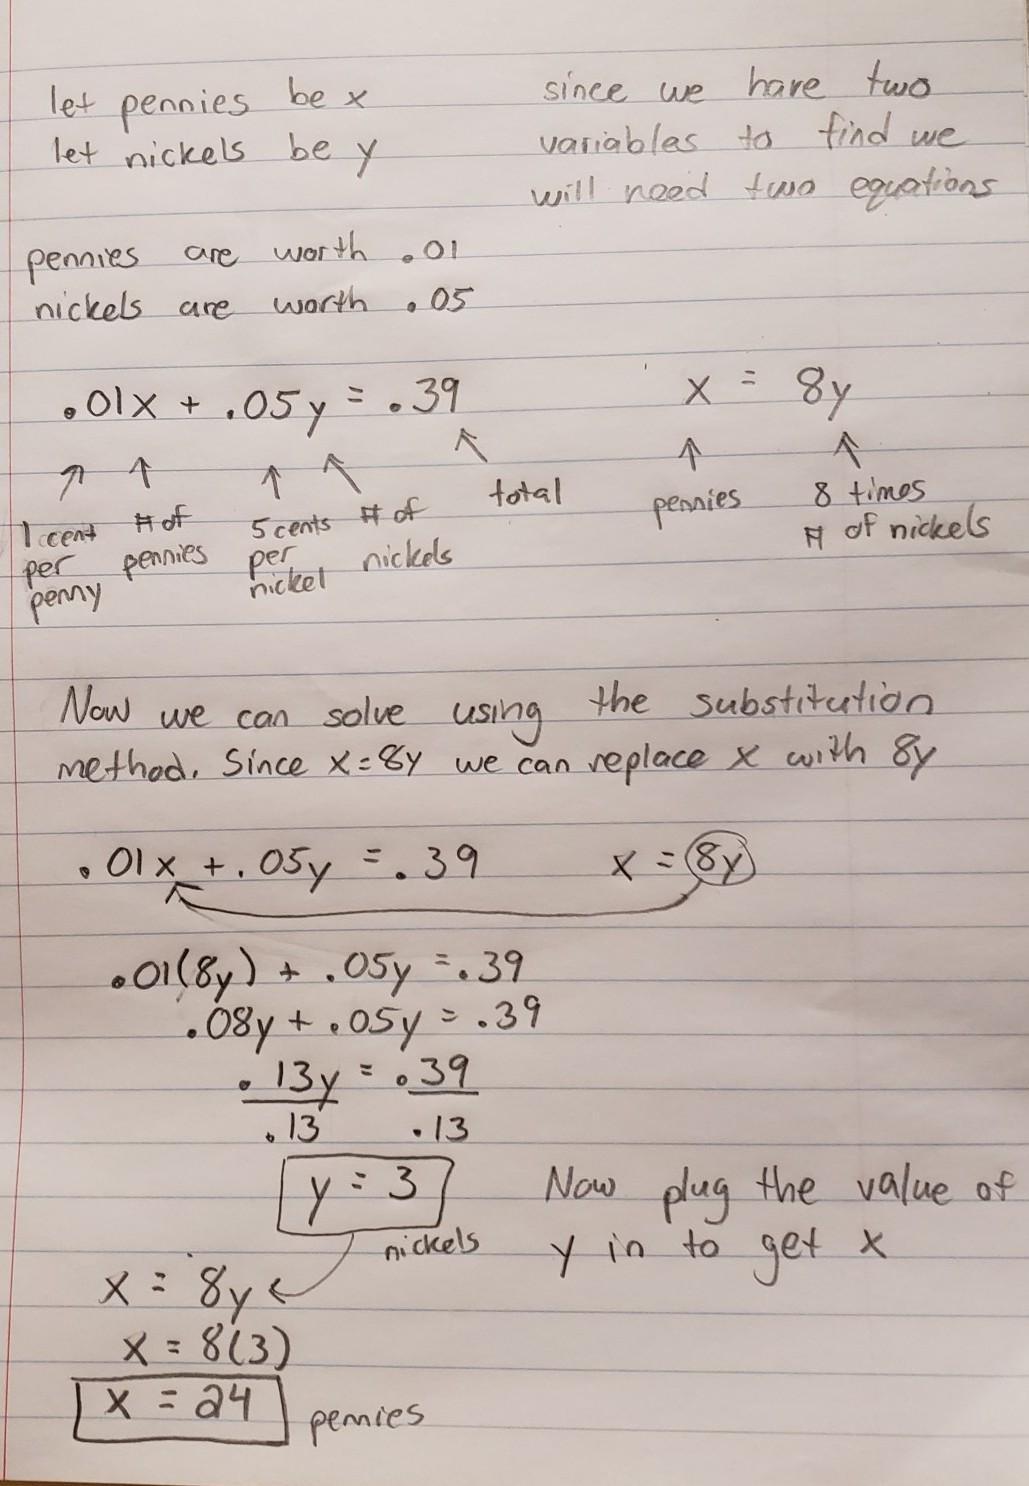 let pennies be x
let nickels be y
since we have two
variables to find we
will need two equations
pennies are worth .01
nickels are worth .05
.01x + .05y = .39
1 cent
per
penny
# of
pennies
5 cents
per
nickel
# of
nickels
total
x = 8y
pennies
8 times
# of nickels
Now we can solve using the substitution
method. Since x=8y we can replace x with 8y
.01x + .05y = .39
x = 8y
.01(8y) + .05y = .39
.08y + .05y = .39
.13y = .39
.13 .13
y = 3
nickels
Now plug the value of
y in to get x
x = 8y
x = 8(3)
x = 24 pennies